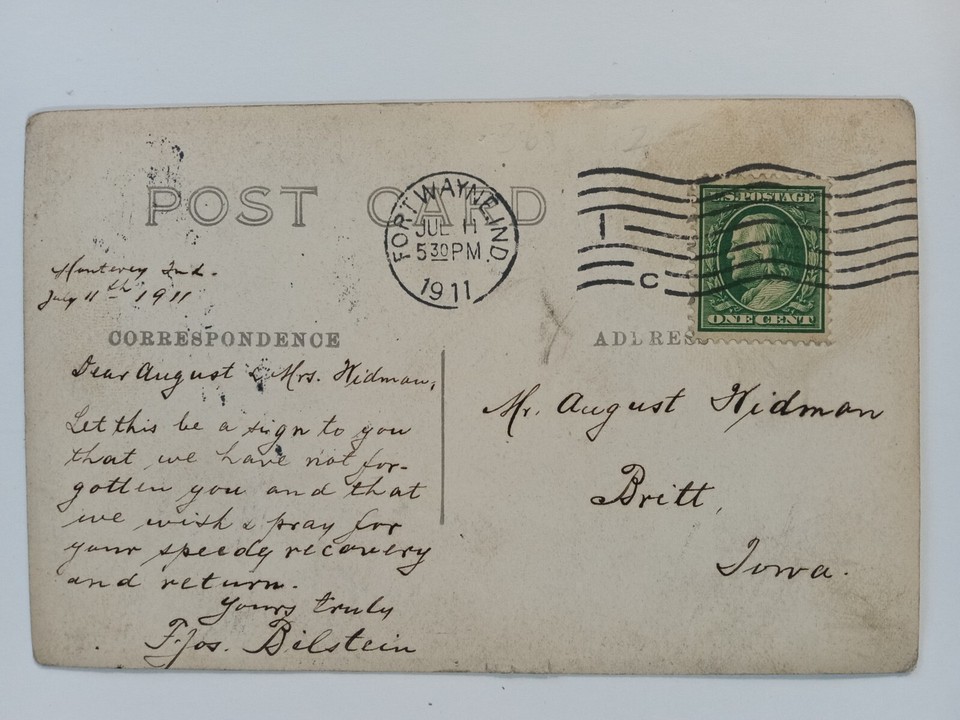 POST CARD
FORT WAYNE, IND.
JUL 11
5 30 PM
1911
1
C
U.S. POSTAGE
ONE CENT
Monterey Ind.
July 11th 1911
CORRESPONDENCE
ADDRESS
Dear August & Mrs. Hidman,
Let this be a sign to you
that we have not for-
gotten you and that
we wish & pray for
your speedy recovery
and return.
Yours truly
F. Jos. Bilstein
Mr. August Hidman
Britt,
Iowa.